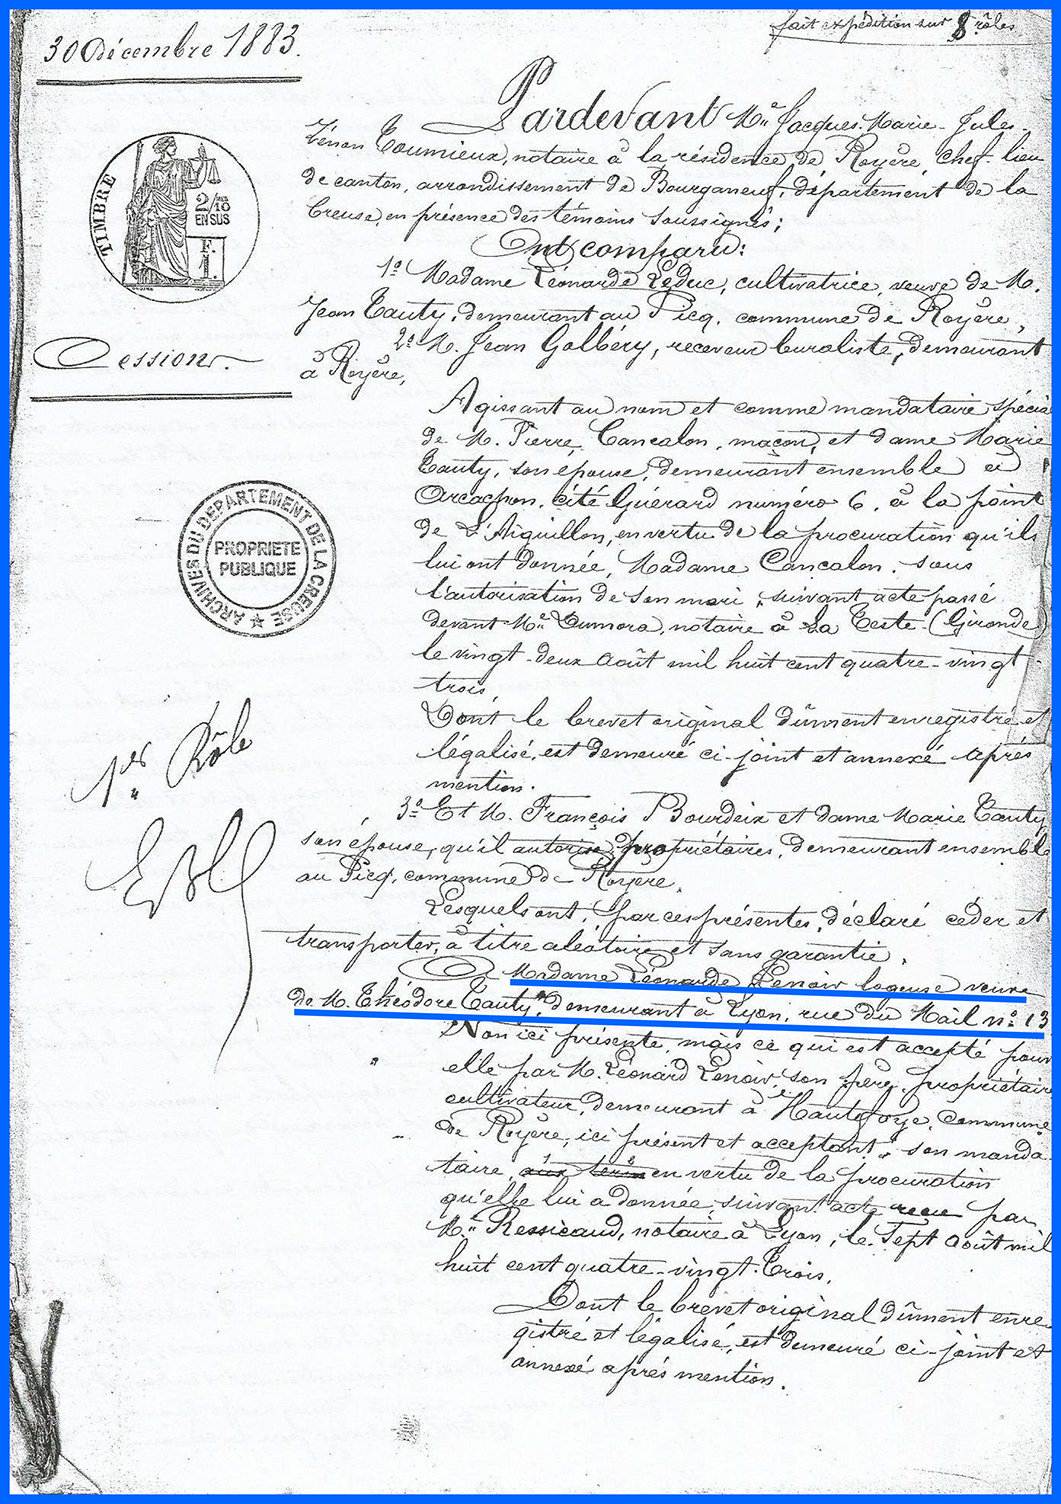 fait expédition sur 8 rôles
30 Décembre 1883.
Pardevant Me Jacques-Marie-Jules-
Zénon Toumieux, notaire à la résidence de Royère, chef-lieu
de canton, arrondissement de Bourganeuf, département de la
Creuse, en présence des témoins soussignés;
Ont comparu:
TIMBRE
2/10
EN SUS
F.
1.
1º Madame Léonarde Leduc, cultivatrice, veuve de M.
Jean Tauty, demeurant au Picq, commune de Royère,
Cession.
2º M. Jean Galbéry, receveur buraliste, demeurant
à Royère,
Agissant au nom et comme mandataire spécial
de M. Pierre Cancalon, maçon, et dame Marie
Tauty, son épouse, demeurant ensemble à
Arcachon, cité Guérard numéro 6, à la point
de L'Aiguillon, en vertu de la procuration qu'ils
ARCHIVES DU DEPARTEMENT DE LA CREUSE
PROPRIETE
PUBLIQUE
lui ont donnée, Madame Cancalon, sous
l'autorisation de son mari, suivant acte passé
devant Me Dumora, notaire à La Teste (Gironde)
le vingt-deux août mil huit cent quatre-vingt-
trois.
Dont le brevet original dûment enregistré et
légalisé, est demeuré ci-joint et annexé après
mention.
1er Rôle
3º Et M. François Bourdeix et dame Marie Tauty
son épouse, qu'il autorise, propriétaires, demeurant ensemble
au Picq, commune de Royère.
Lesquels ont, par ces présentes, déclaré céder et
transporter, à titre aléatoire et sans garantie,
A Madame Léonarde Lenoir logeuse veuve
de M. Théodore Tauty, demeurant à Lyon, rue du Mail nº 13
Non ici présente, mais ce qui est accepté pour
elle par M. Léonard Lenoir, son père, propriétaire
cultivateur, demeurant à Hautefaye, commune
de Royère, ici présent et acceptant, son manda-
taire, en vertu de la procuration
qu'elle lui a donnée, suivant acte reçu par
Me Ressicaud, notaire à Lyon, le sept août mil
huit cent quatre-vingt-trois.
Dont le brevet original dûment enre-
gistré et légalisé, est demeuré ci-joint et
annexé après mention.